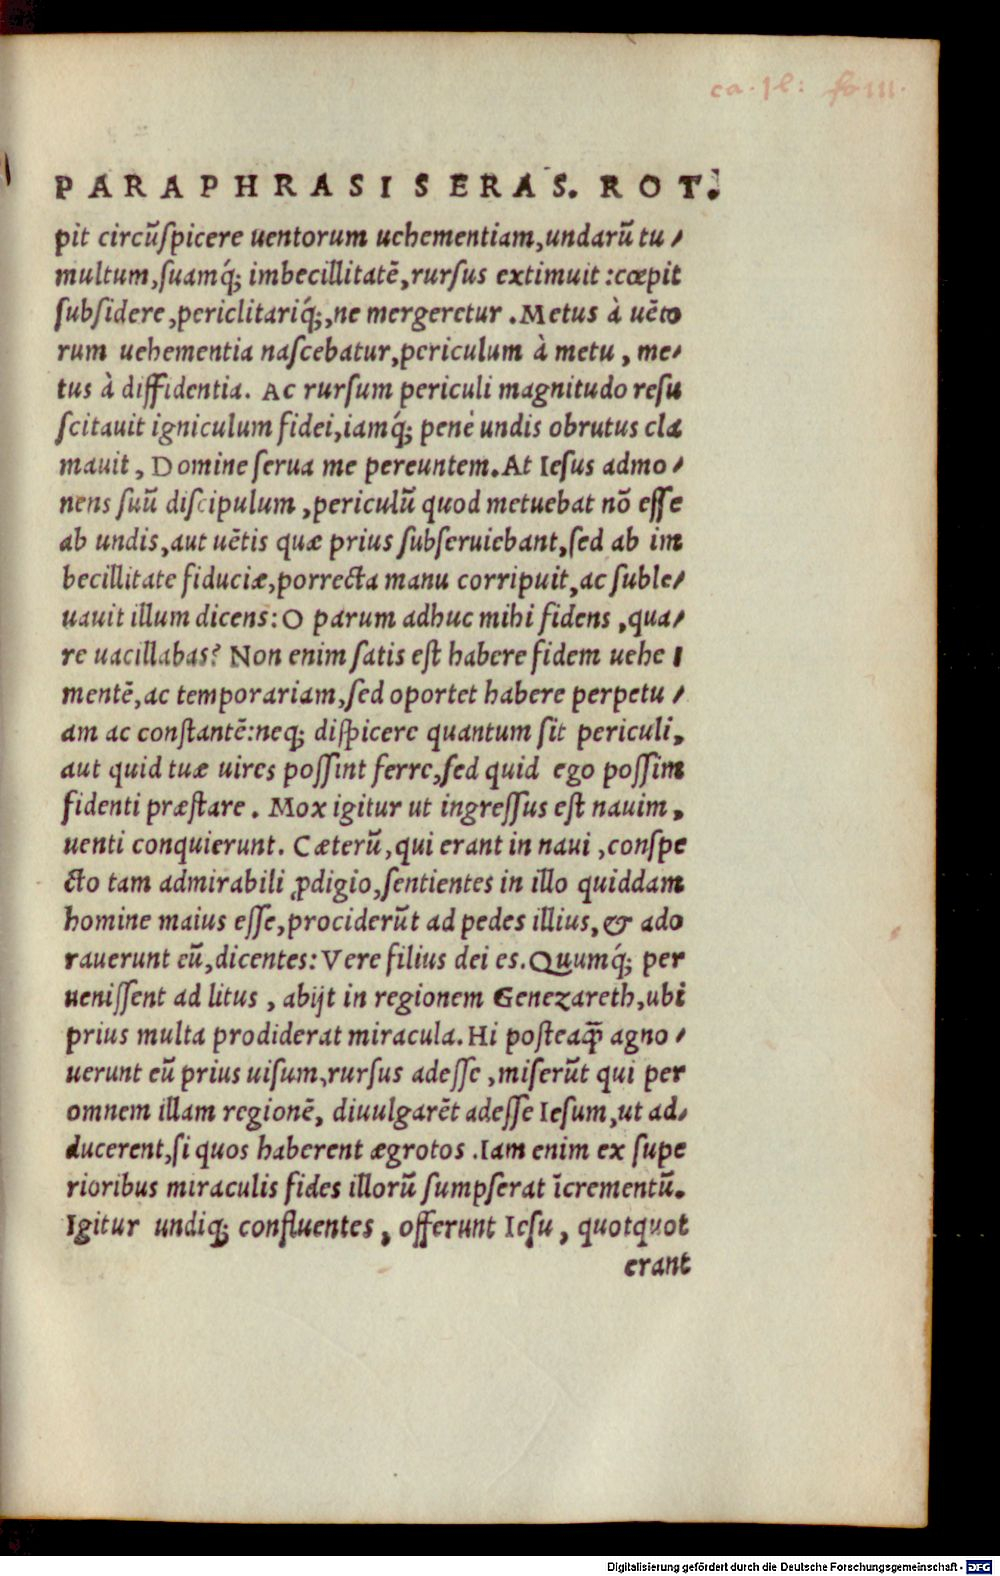 PARAPHRASIS ERAS. ROT.
pit circũſpicere uentorum uehementiam,undarũ tu⸗
multum,ſuamq́; imbecillitatẽ,rurſus extimuit :cœpit
ſubſidere,periclitariq́;,ne mergeretur .Metus à uẽto
rum uehementia naſcebatur,periculum à metu , me⸗
tus à diffidentia. Ac rurſum periculi magnitudo reſu
ſcitauit igniculum fidei,iamq́; penè undis obrutus cla
mauit , Domine ſerua me pereuntem.At Ieſus admo⸗
nens ſuũ diſcipulum ,periculũ quod metuebat nõ eſſe
ab undis,aut uẽtis quæ prius ſubſeruiebant,ſed ab im
becillitate fiduciæ,porrecta manu corripuit,ac ſuble⸗
uauit illum dicens:O parum adhuc mihi fidens ,qua⸗
re uacillabas? Non enim ſatis eſt habere fidem uehe⸗
mentẽ,ac temporariam,ſed oportet habere perpetu⸗
am ac conſtantẽ:neq; diſpicere quantum ſit periculi,
aut quid tuæ uires poſſint ferre,ſed quid ego poſſim
fidenti præſtare . Mox igitur ut ingreſſus eſt nauim ,
uenti conquierunt. Cæterũ,qui erant in naui ,conſpe
cto tam admirabili ꝓdigio,ſentientes in illo quiddam
homine maius eſſe,prociderũt ad pedes illius,& ado
rauerunt eũ,dicentes:Vere filius dei es.Quumq́; per
ueniſſent ad litus , abijt in regionem Genezareth,ubi
prius multa prodiderat miracula.Hi poſteaq̃ agno⸗
uerunt eũ prius uiſum,rurſus adeſſe ,miſerũt qui per
omnem illam regionẽ, diuulgarẽt adeſſe Ieſum,ut ad⸗
ducerent,ſi quos haberent ægrotos .Iam enim ex ſupe
rioribus miraculis fides illorũ ſumpſerat ĩcrementũ.
Igitur undiq; confluentes , offerunt Ieſu , quotquot
erant
Digitalisierung gefördert durch die Deutsche Forschungsgemeinschaft - DFG